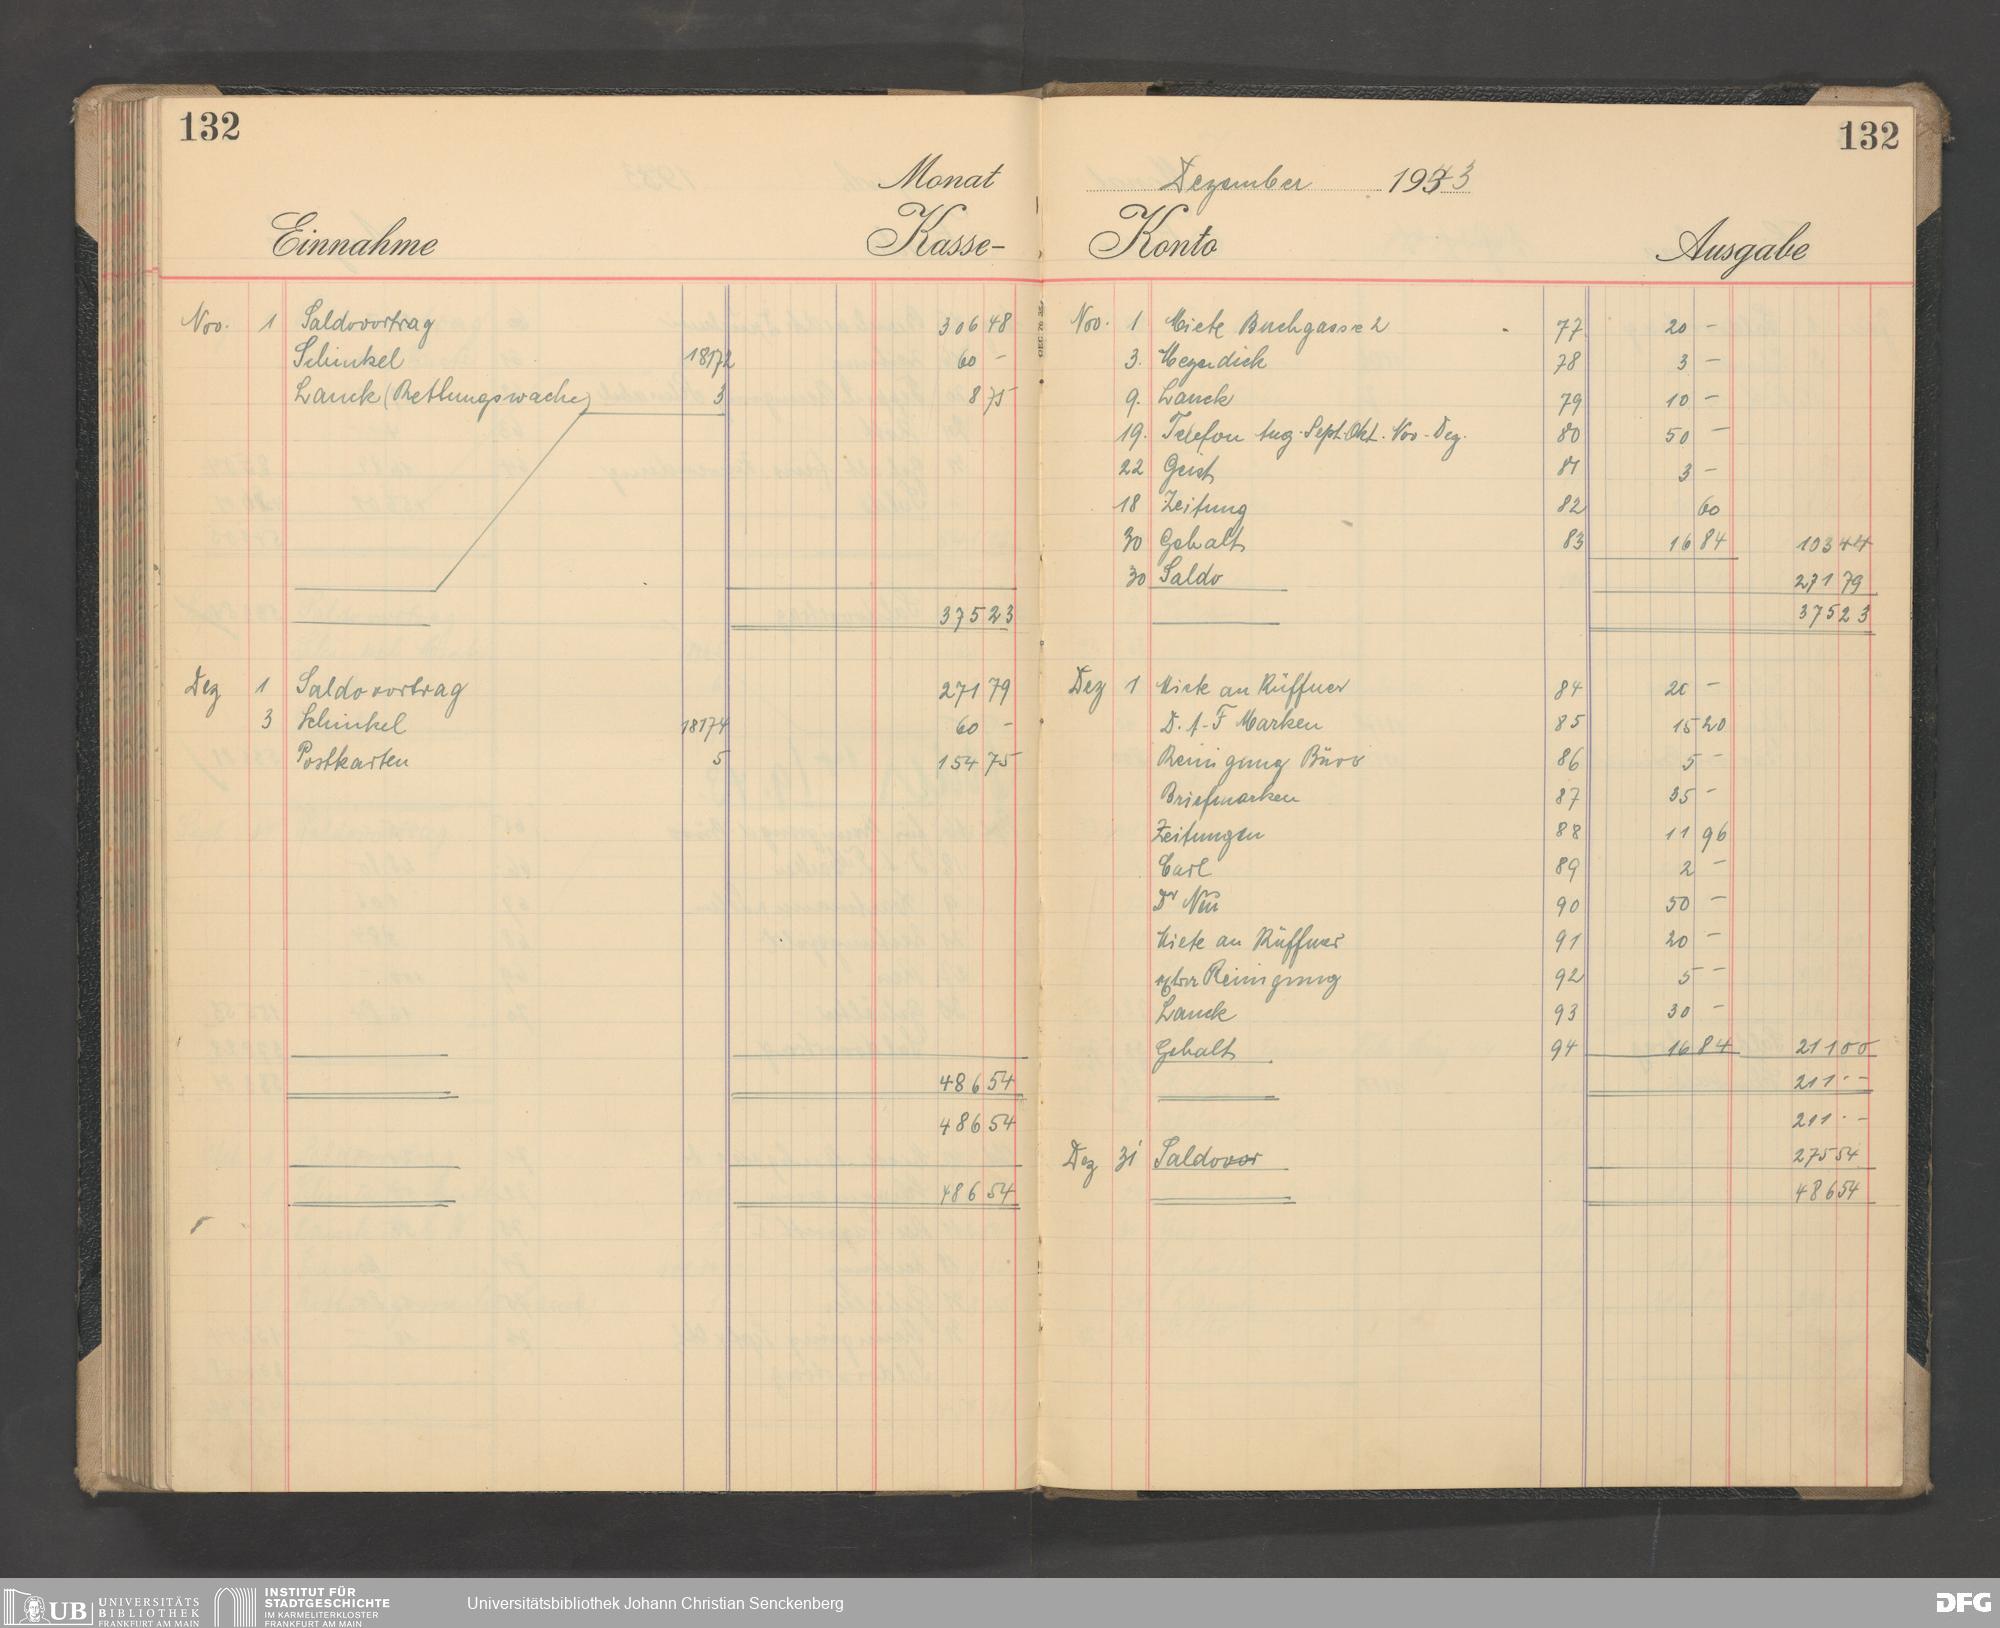 132
Monat
Einnahme Kasse-
Nov. 1 Saldovortrag 306 48
Schinkel 18172 60 -
Lanck (Rettungswache) 3 8 75
375 23
Dez 1 Saldovortrag 271 79
3 Schinkel 18174 60 -
Postkarten 5 154 75
486 54
486 54
486 54
132
Dezember 1943
Konto Ausgabe
Nov. 1 Miete Buchgasse 2 77 20 -
3. Meyerdick 78 3 -
9. Lanck 79 10 -
19. Telefon Aug. Sept. Okt. Nov - Dez. 80 50 -
22 Geist 81 3 -
18 Zeitung 82 60
30 Gehalt 83 16 84 103 44
30 Saldo 271 79
375 23
Dez 1 Miete an Rüffner 84 20 -
D.A.F Marken 85 15 20
Reinigung Büro 86 5 -
Briefmarken 87 35 -
Zeitungen 88 11 96
Carl 89 2 -
Dr 90 50 -
Miete an Rüffner 91 20 -
Reinigung 92 5 -
Lanck 93 30 -
Gehalt 94 16 84 211 00
211 - -
211 - -
Dez 31 Saldovor 275 54
486 54
UB UNIVERSITÄTS
BIBLIOTHEK
FRANKFURT AM MAIN
INSTITUT FÜR
STADTGESCHICHTE
IM KARMELITERKLOSTER
FRANKFURT AM MAIN
Universitätsbibliothek Johann Christian Senckenberg
DFG